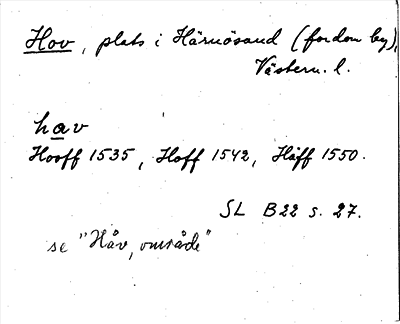 Hov, plats i Härnösand (fordom by),
Västern. l.
hav
Hooff 1535, Hoff 1542, Håff 1550.
SL B22 s. 27.
se "Håv, område"